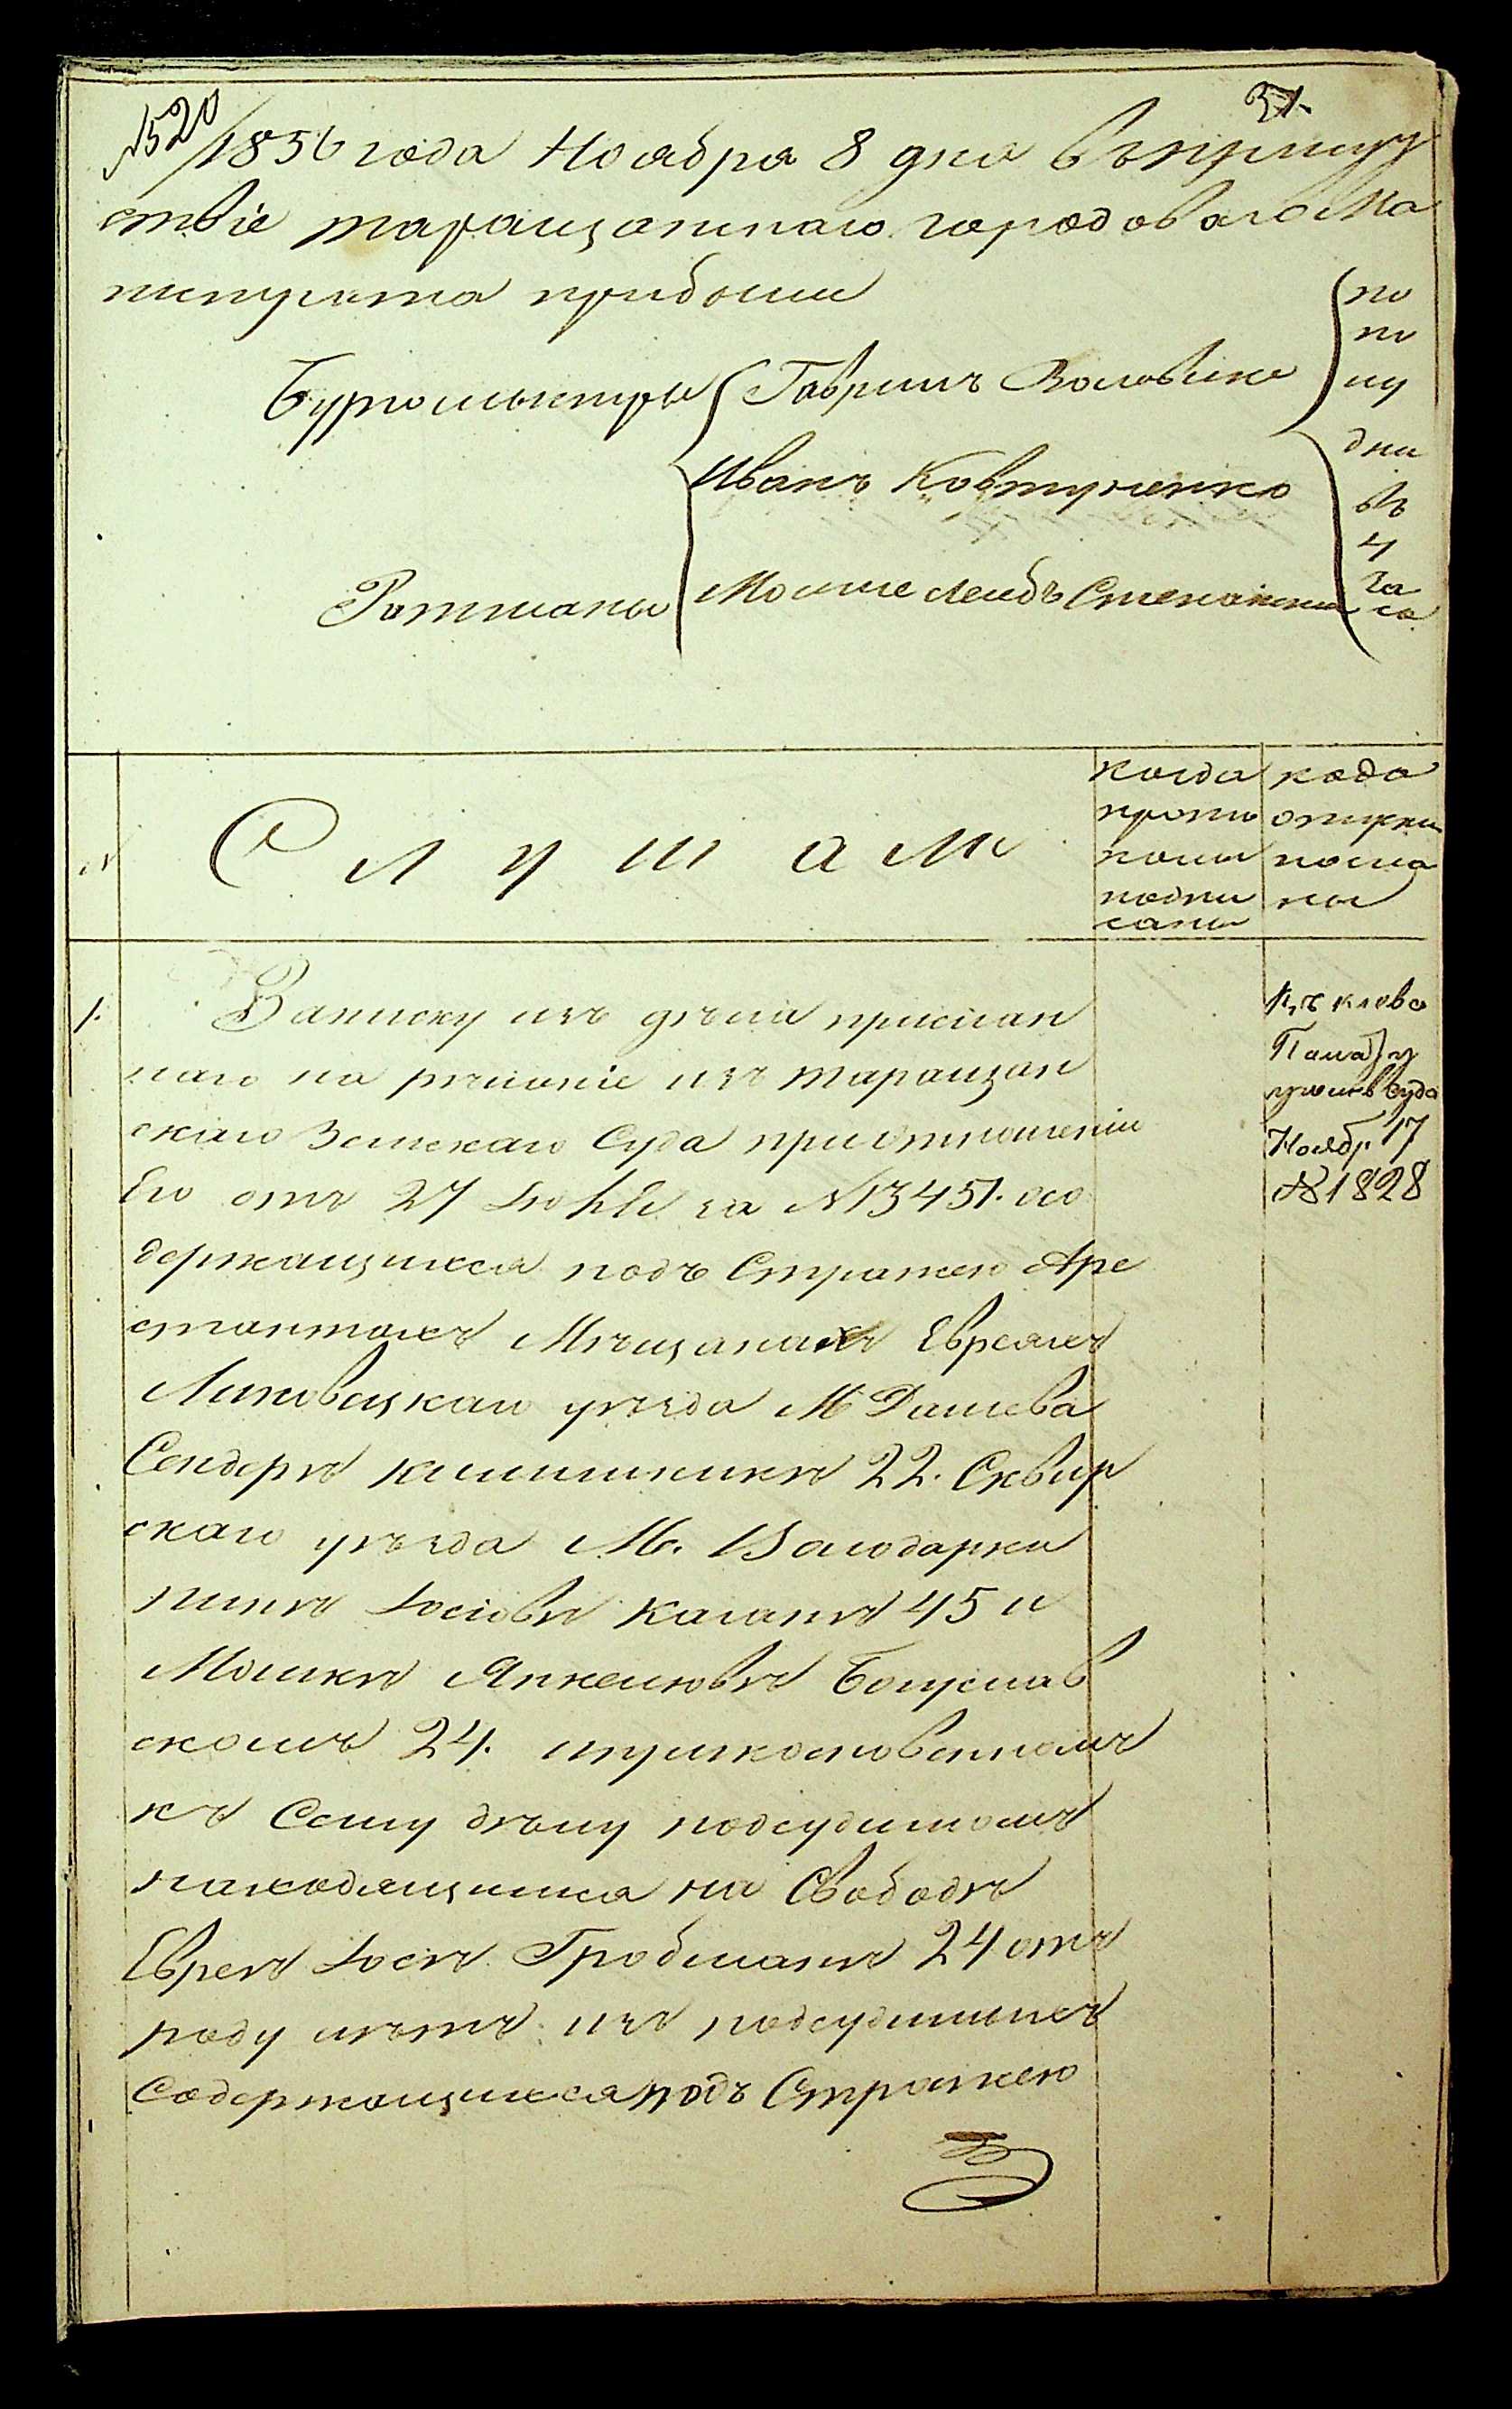 №520
37.
1856 года Ноября 8 дня въ присут
ствіе таращанскаго городоваго Ма
гистрата прибыли
Бургомистры Гаврилъ Воловико
Иванъ Ковтуненко
Ратманы Мошие Лейбъ
по
по
лу
дни
въ
4
ча
са
№
Слушали
когда
прото
колы
подпи
саны
когда
отпуски
посла
ны
1.
Записку изъ дѣла прислан
наго на рѣшеніе изъ таращан
скаго Земскаго Суда при отношеніи
Его отъ 27 Іюля за №13451. осо
держащихся подъ Стражею Аре
стантахъ Мѣщанахъ Евреяхъ
Липовецкаго уѣзда М Дашева
Сендерѣ 22. Сквир
скаго уѣзда М. Володарки
Іосіовѣ Каганѣ 45 и
Мошкѣ Янкелювѣ Богуслав
скомъ 24. и прикосновенномъ
къ Сему дѣлу подсудимомъ
находящимся на Свободѣ
Евреѣ Іосѣ Гробманѣ 24 отъ
роду лѣтъ изъ подсудимыхъ
Содержащихся подъ Стражею
Кіевс
Палат у
Суда
Ноябр 17
№1828